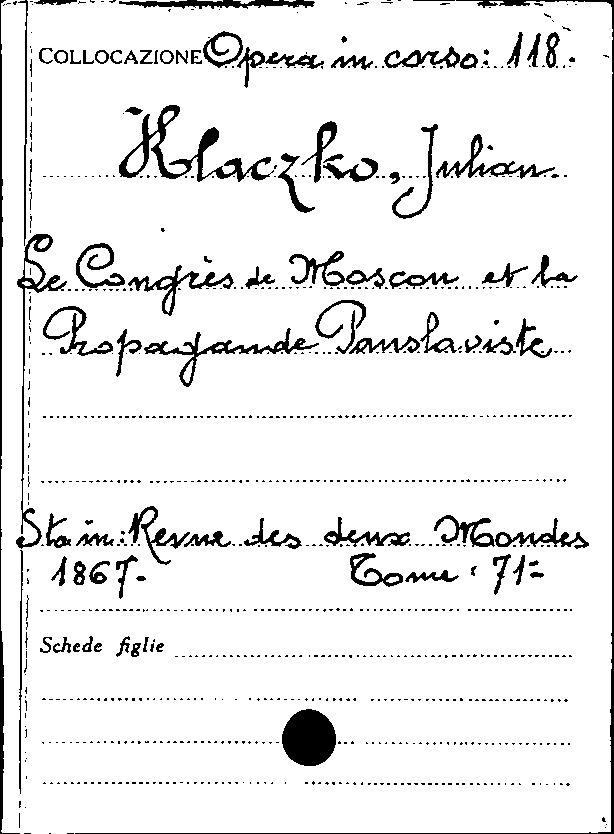 COLLOCAZIONE Opera in corso: 118.
Klaczko, Julian.
Le Congrès de Moscou et la
Propagande Panslaviste
Sta in: Revue des deux Mondes
1867.- Tome: 71=
Schede figlie